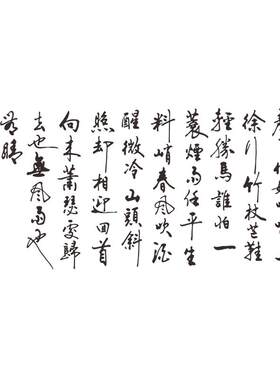 徐行竹杖芒鞋
輕勝馬誰怕一
蓑煙雨任平生
料峭春風吹酒
醒微冷山頭斜
照却相迎回首
向来蕭瑟處歸
去也無風雨也
無晴